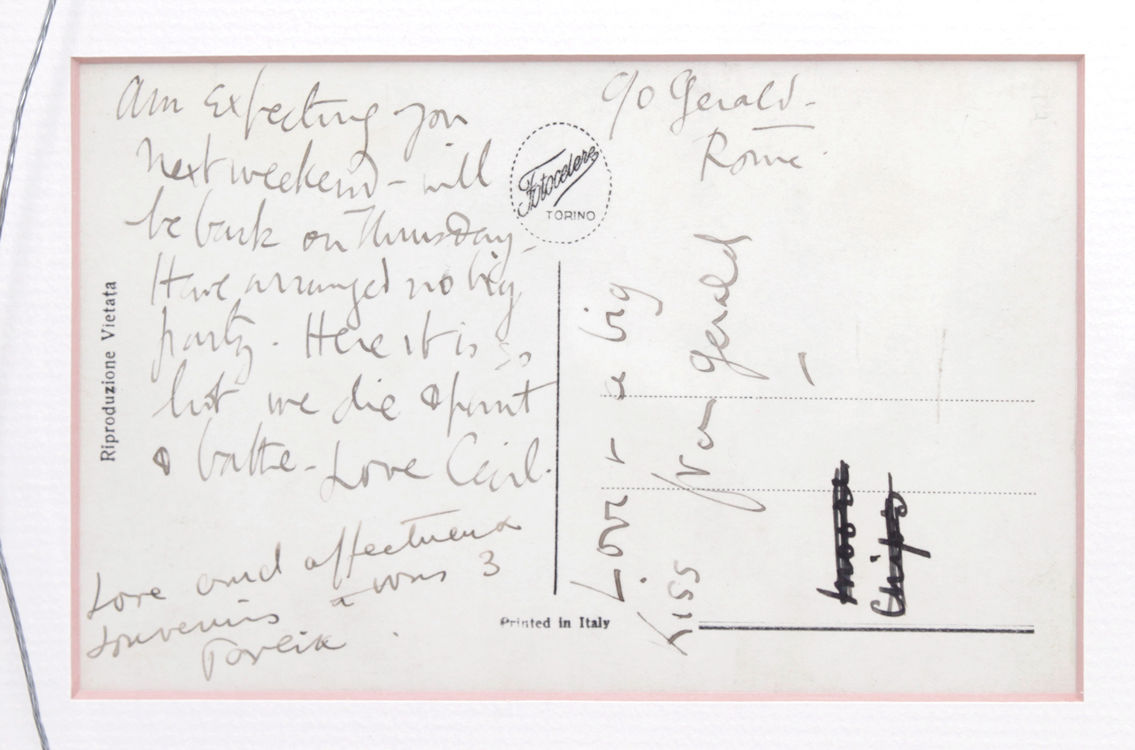 Am Expecting you
next weekend - will
be back on Thursday -
Have arranged no big
party. Here it is so
hot we die & paint
& bathe - Love Cecil.
Love and affectueux
souvenirs à vous 3
c/o Gerald -
Rome
Love + a big
kiss from Gerald
Chips
Riproduzione Vietata
Fotocelere
TORINO
Printed in Italy